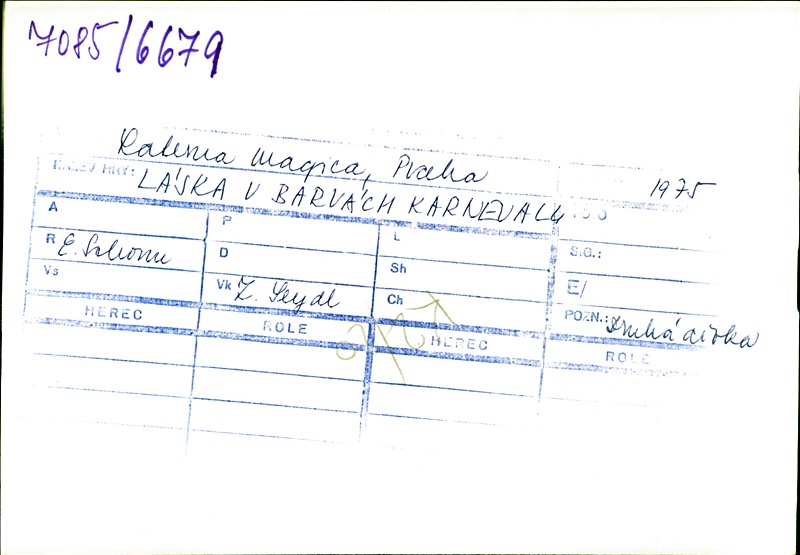 7085/6679
Laterna magica, Praha
NÁZEV HRY: LÁSKA V BARVÁCH KARNEVALU 1975
A P L S.G.:
R E. Schorm D Sh E/
Vs Vk Z. Seydl Ch POZN.: Druhá dívka
HEREC ROLE HEREC ROLE